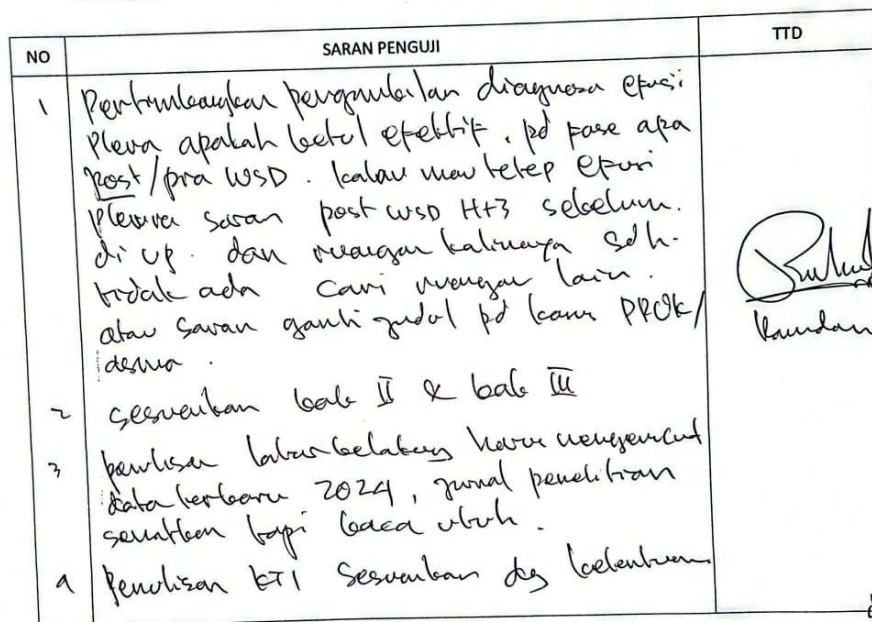 NO SARAN PENGUJI TTD
1 Pertimbangkan pengambilan diagnosa efusi
Pleura apakah betul efektif, pd fase apa
Post/pra WSD. kalau mau tetep efusi
Pleura saran post WSD H+3 sebelum
di up. dan ruangan kalimaya sdh
tidak ada cari ruangan lain.
atau saran ganti judul pd kasus PPOK/
asma.
2 sesuaikan bab II & bab III
3 penulisan latar belakang harus
data terbaru 2024, jurnal penelitian
tapi baca utuh.
4 Penulisan KTI Sesuaikan dg ketentuan